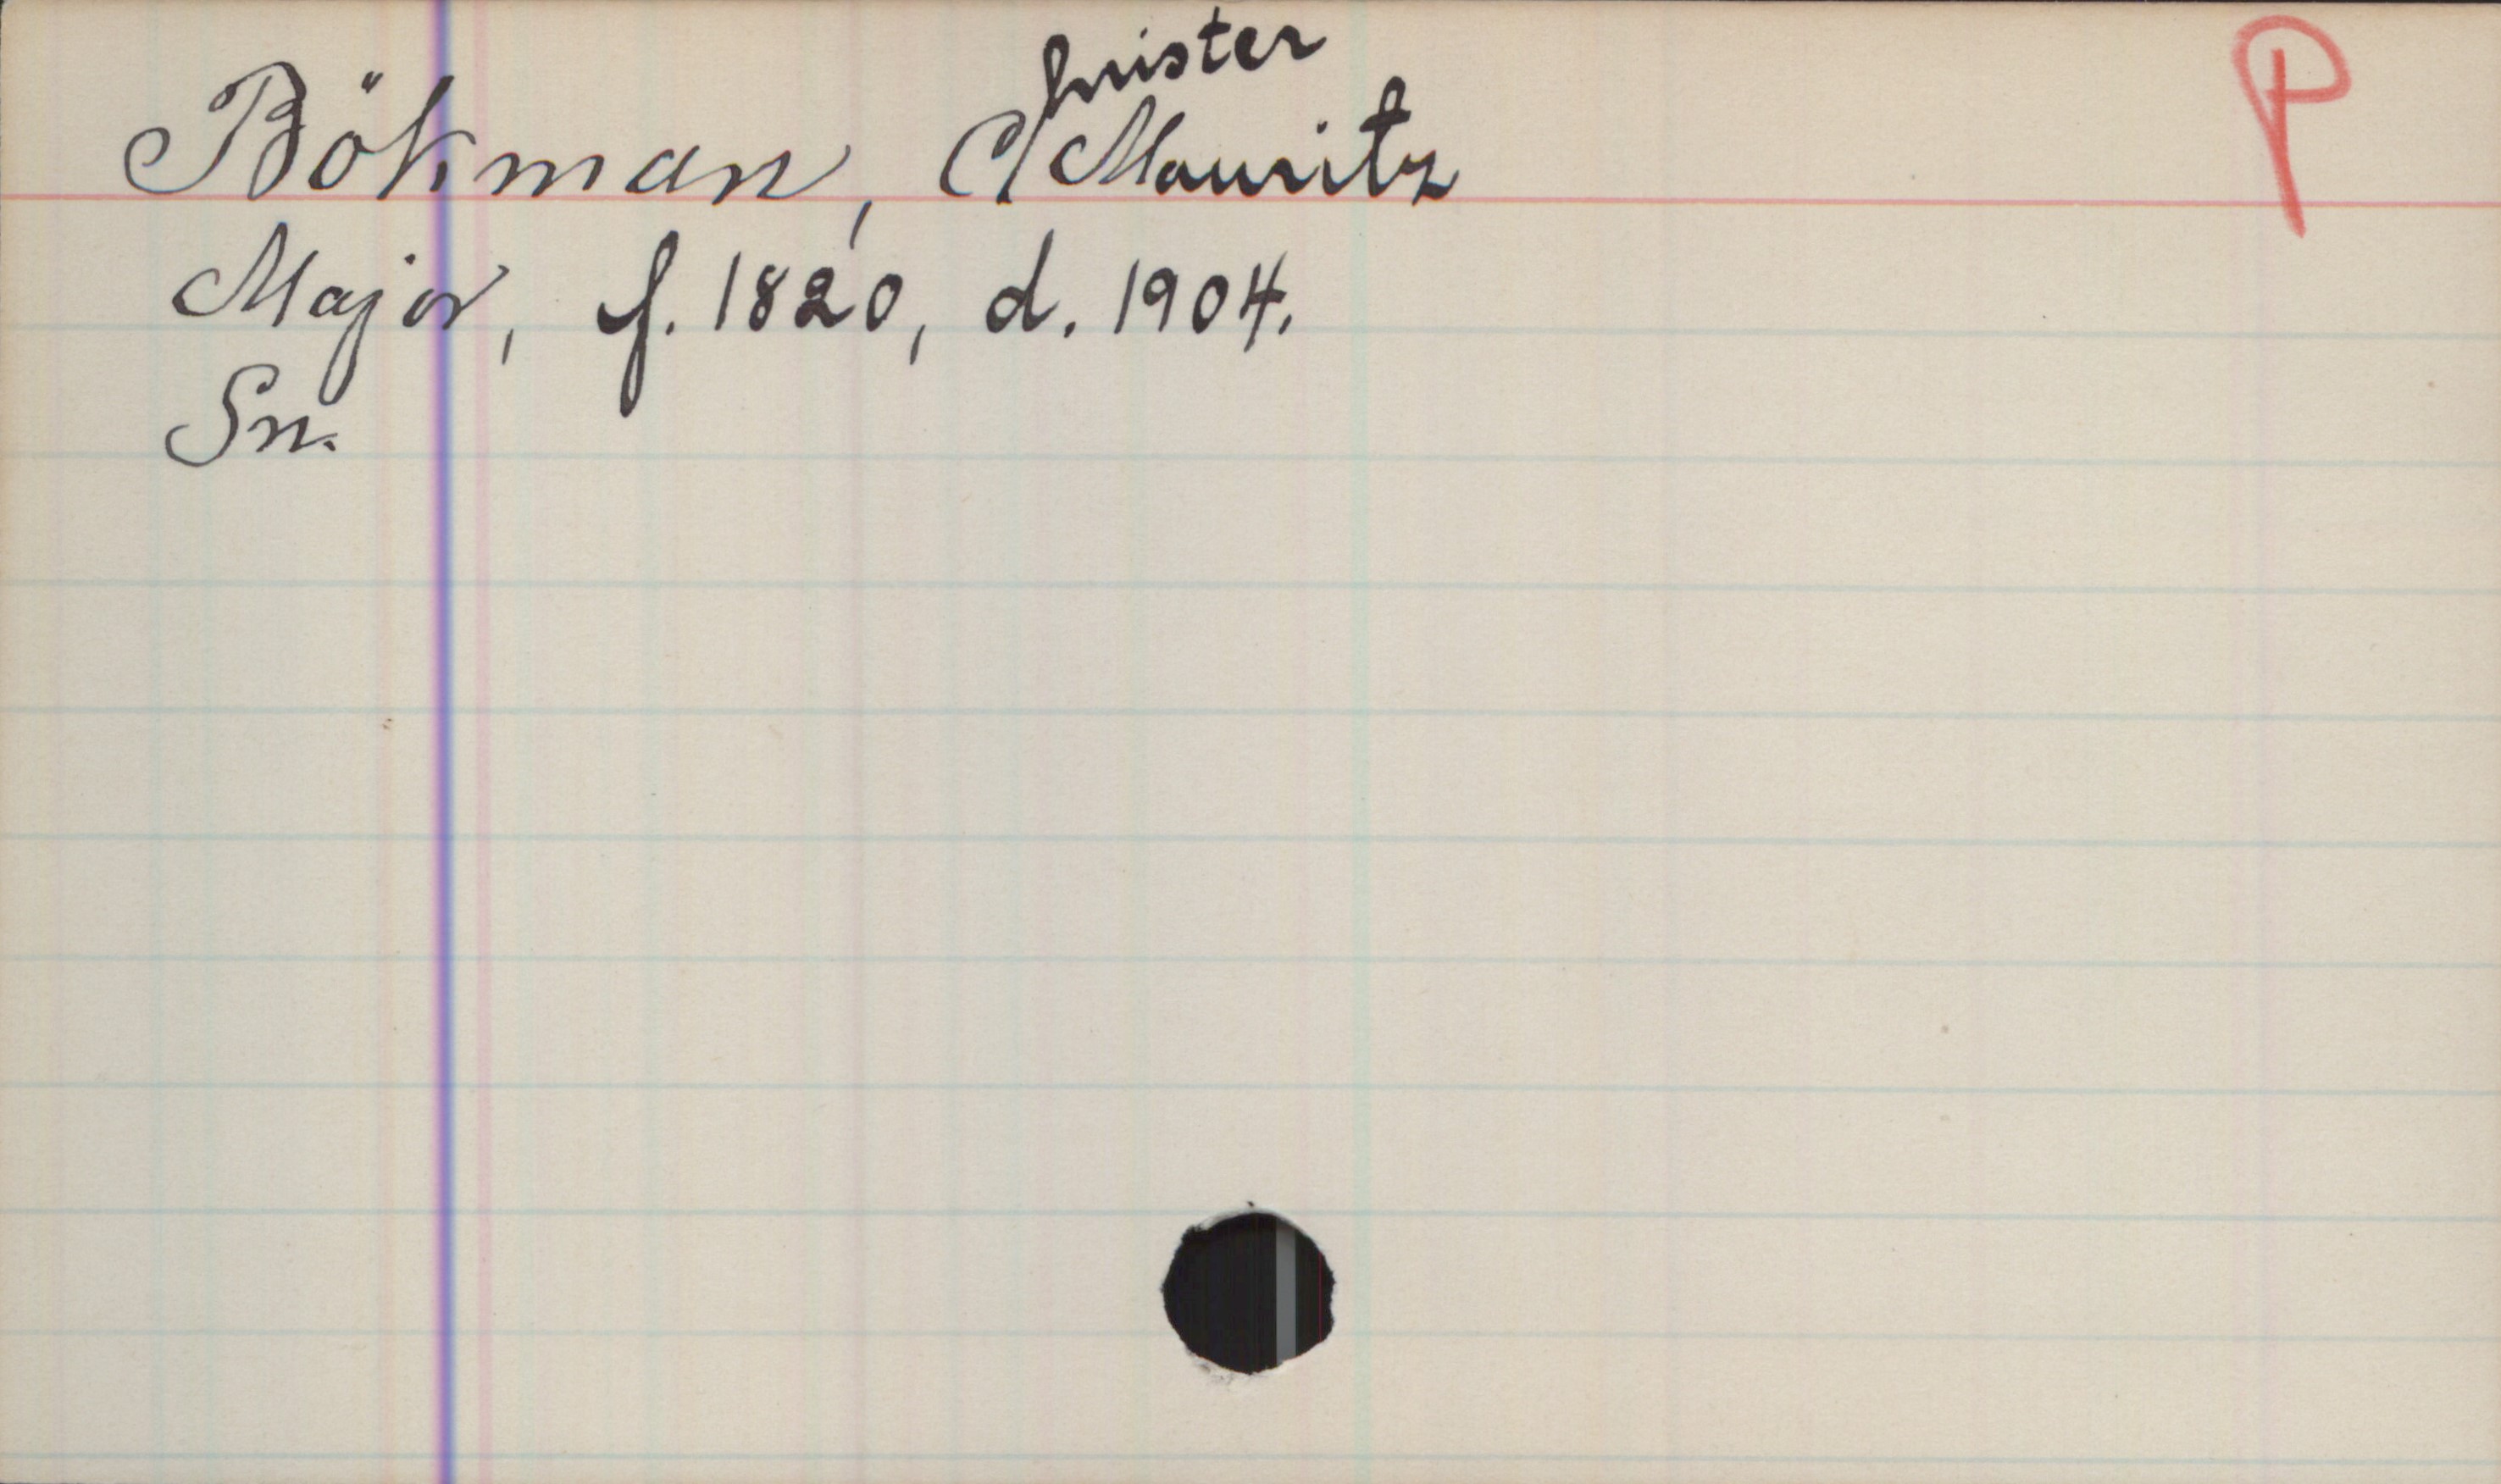 Bökman, Christer Mauritz P
Major, f. 1820, d. 1904.
Sn.